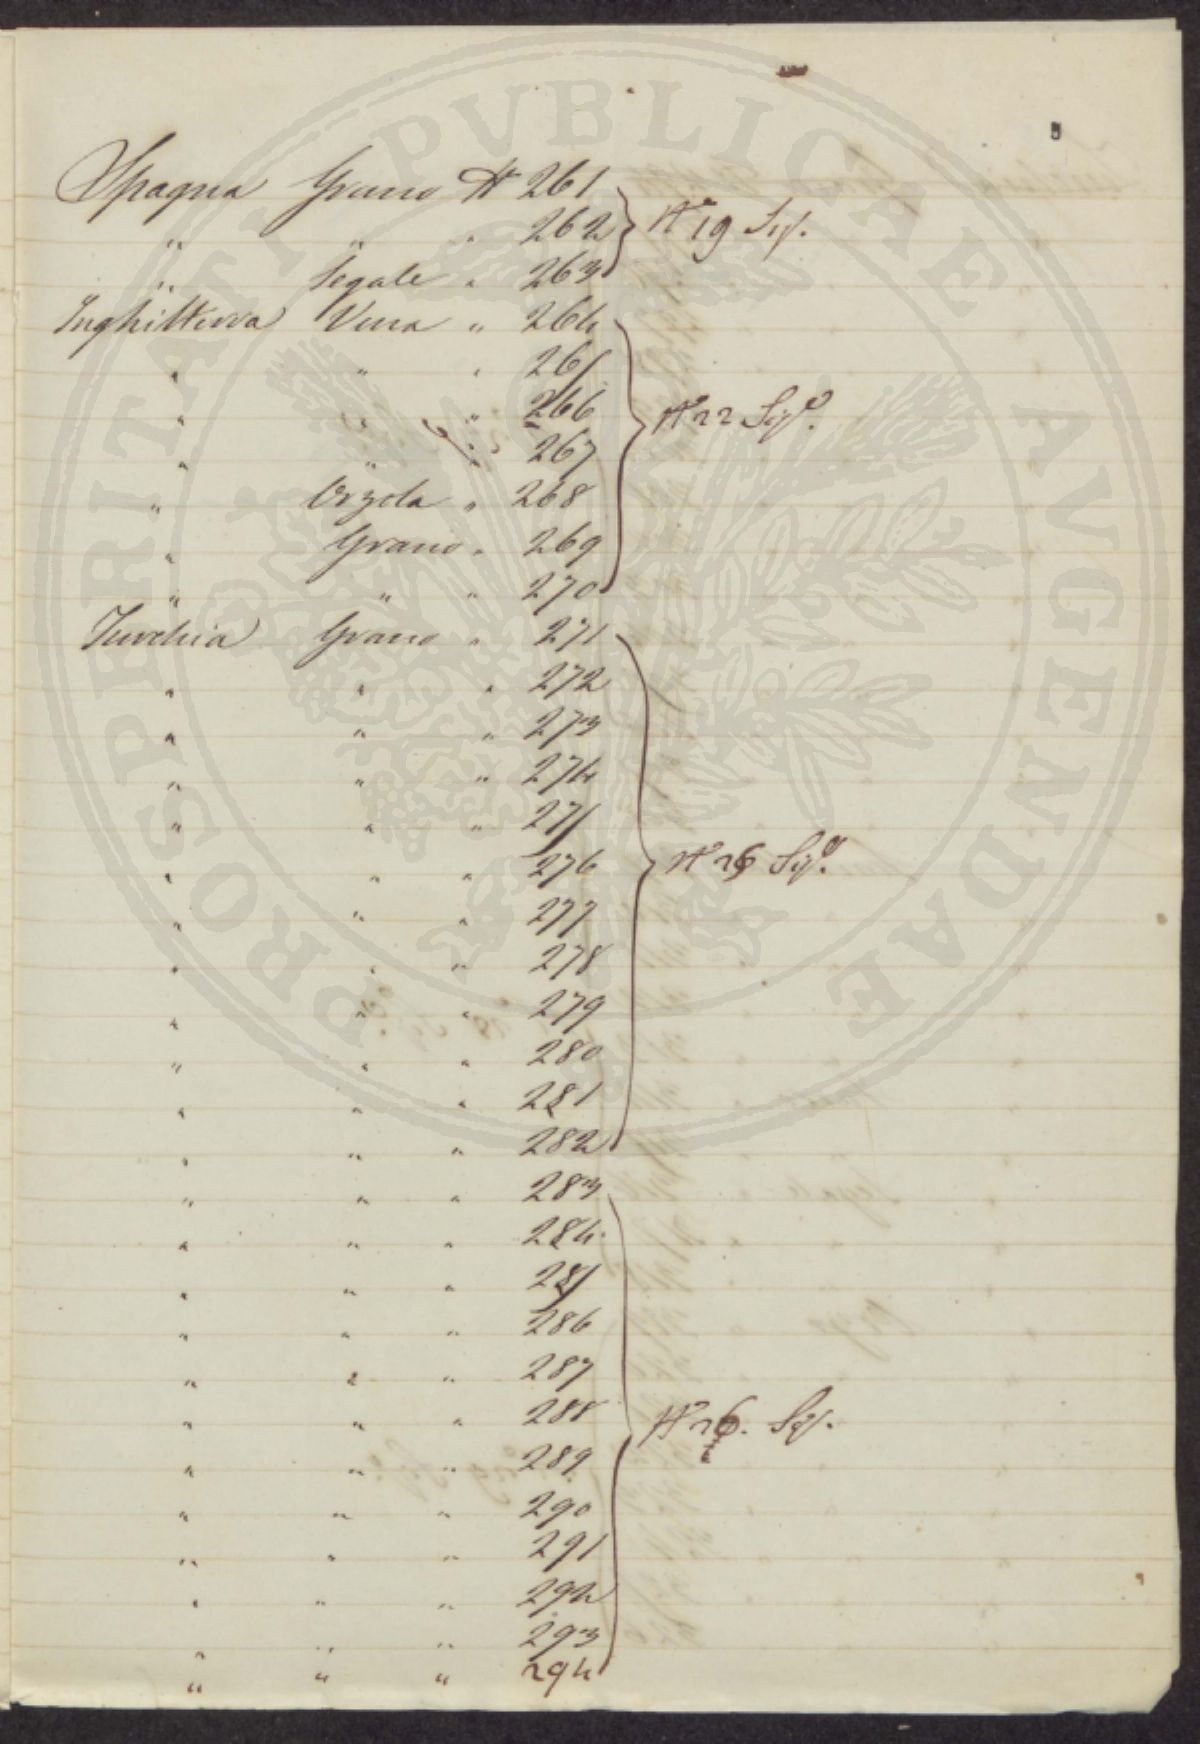 Spagna Grano N° 261
" " " 262 N° 19 Sig.
" Segale " 263
Inghilterra Vena " 264
" " " 265
" " " 266 N° 22 Sig.
" " " 267
" Orzola " 268
" Grano " 269
" " " 270
Turchia Grano " 271
" " " 272
" " " 273
" " " 274
" " " 275
" " " 276 N° 26 Sig.
" " " 277
" " " 278
" " " 279
" " " 280
" " " 281
" " " 282
" " " 283
" " " 284
" " " 285
" " " 286
" " " 287
" " " 288 N° 26. Sig.
" " " 289
" " " 290
" " " 291
" " " 292
" " " 293
" " " 294
PROSPERITATI PVBLICAE AVGENDAE